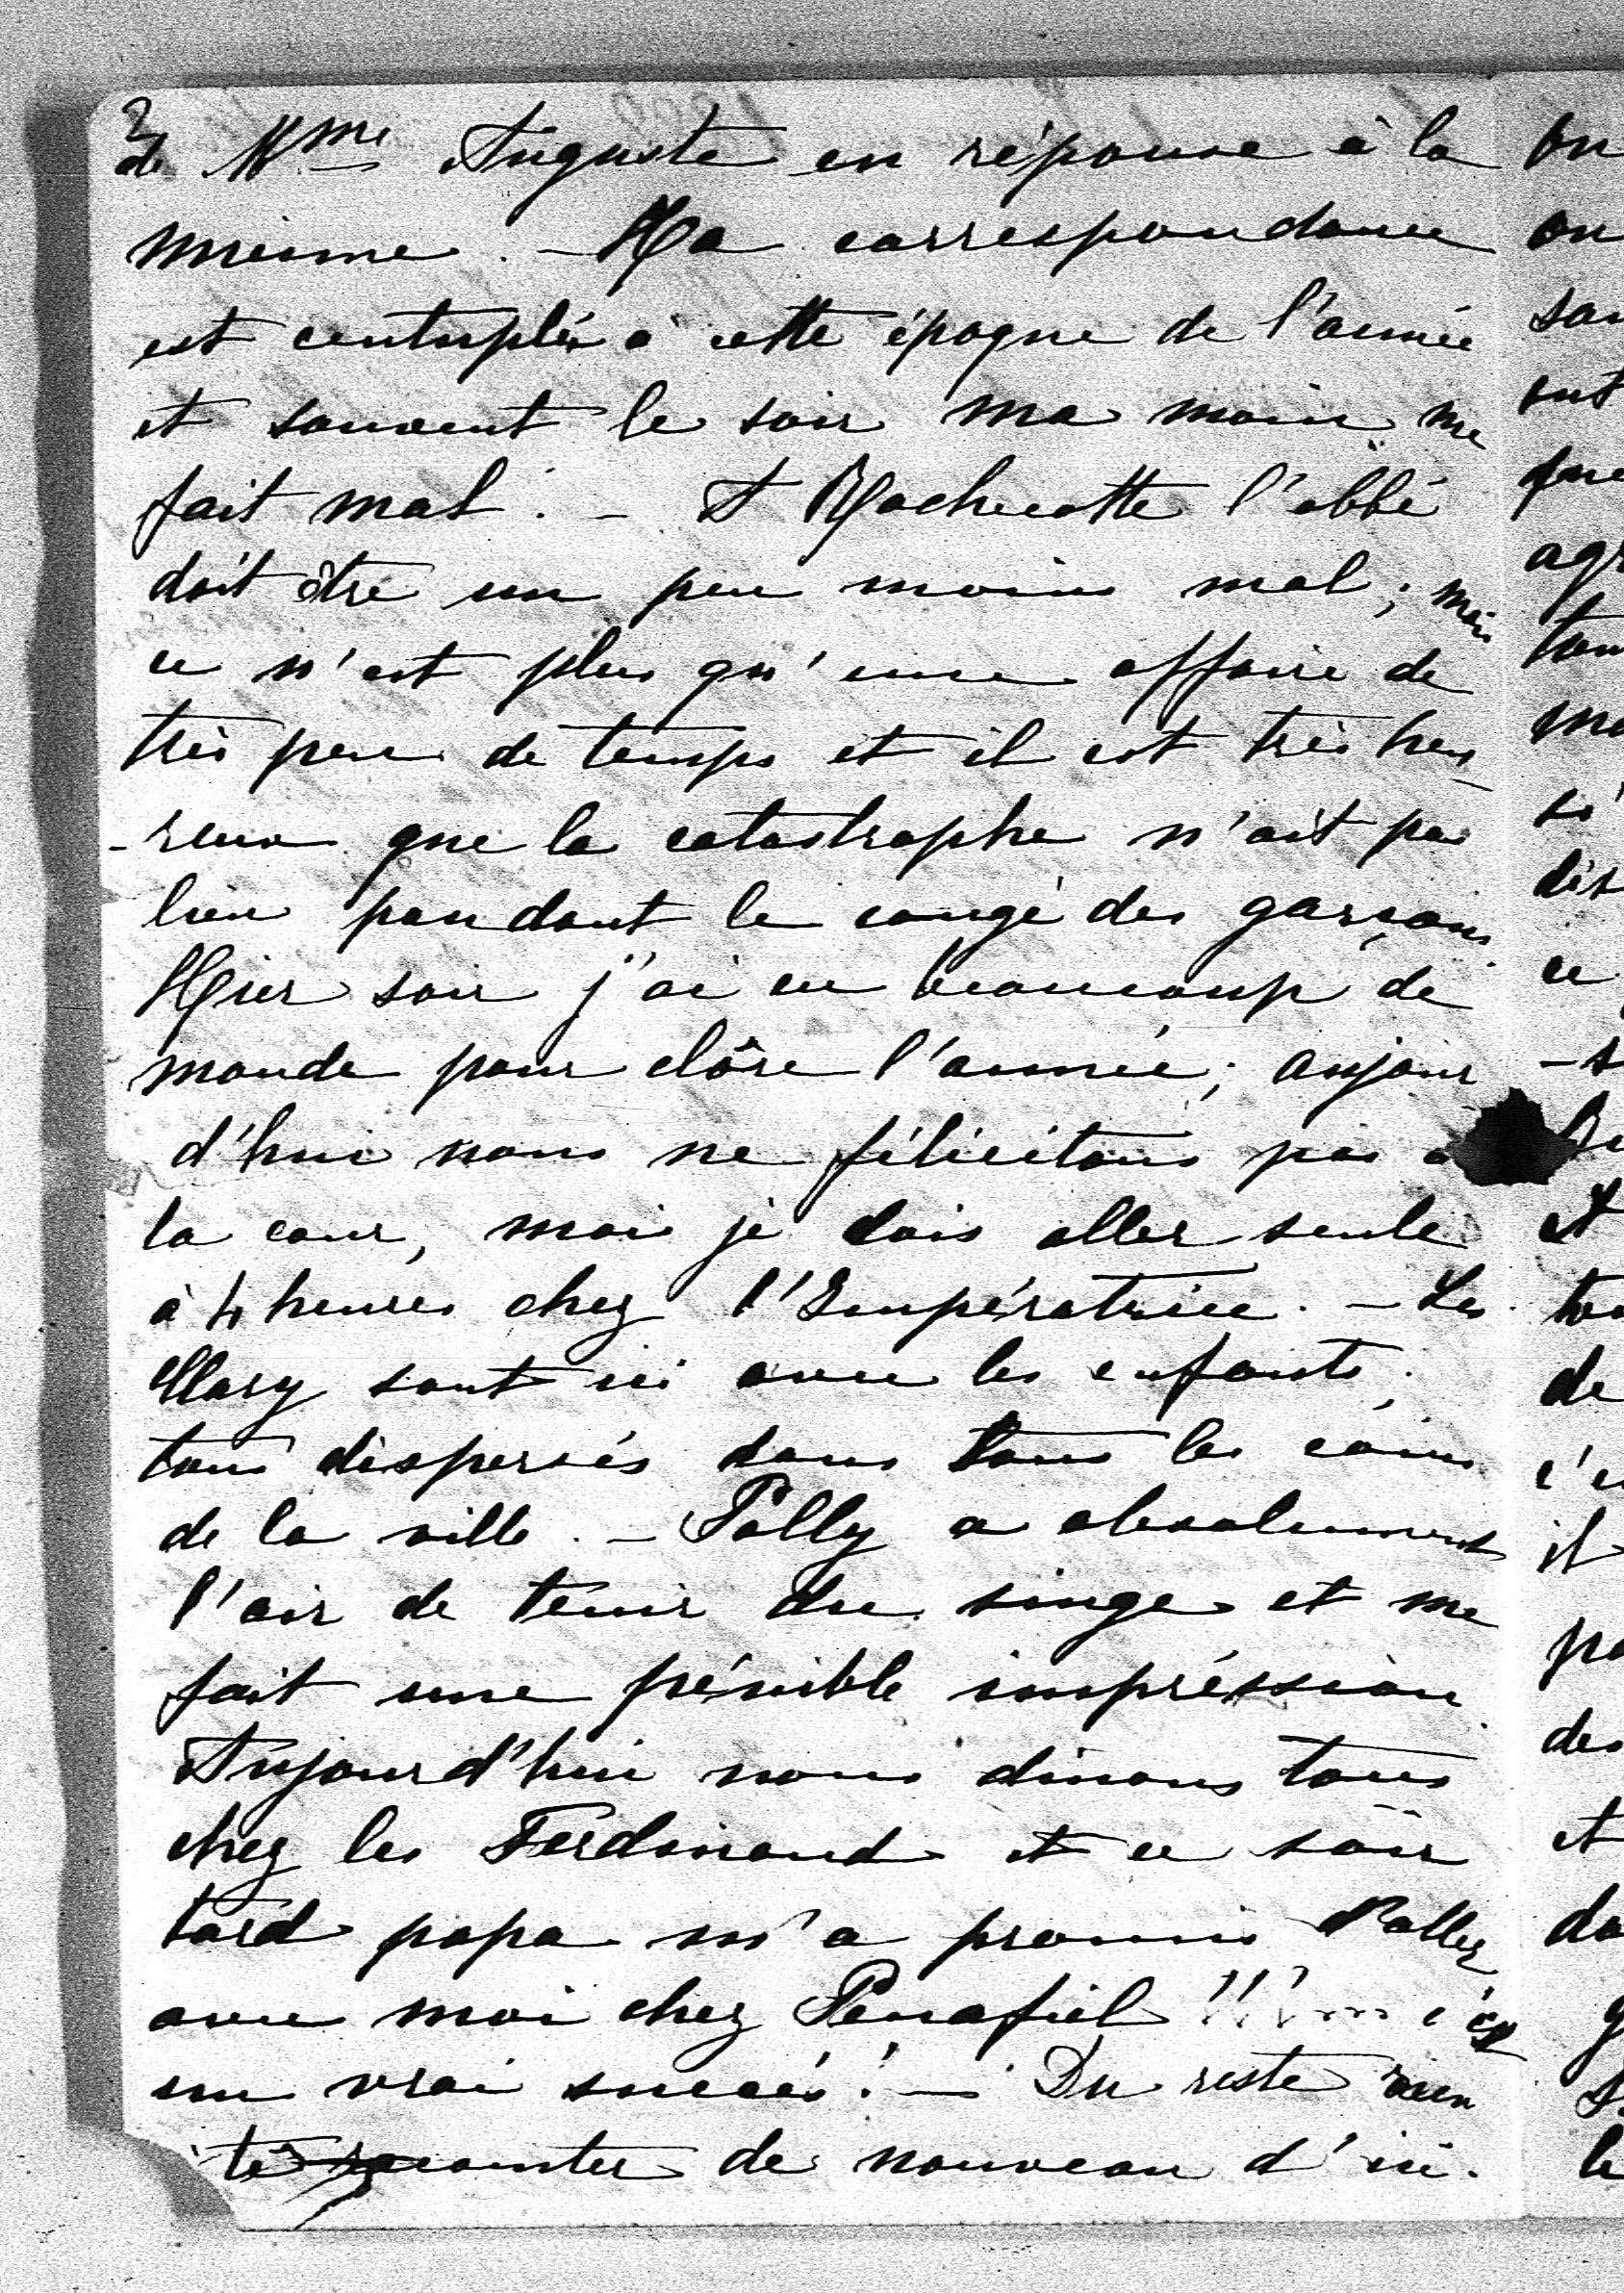 2
de Mme Auguste en réponse à la
mienne. - Ma correspondance
est centuplée à cette époque de l'année
et souvent le soir ma main me
fait mal. - A Rochecotte l'abbé
doit être un peu moins mal; mais
ce n'est plus qu'une affaire de
très peu de temps et il est très heu
-reux que la catastrophe n'ait pas
lieu pendant le congé des garçons
Hier soir j'ai eu beaucoup de
monde pour clôre l'année; aujour
d'hui nous ne félicitons pas à
la cour, moi je dois aller seule
à 4 heures chez l'Impératrice. - Les
Clary sont ici avec les enfants;
tous dispersés dans tous les coins
de la ville. - Polly a absolument
l'air de tenir du singe et me
fait une pénible impréssion
Aujourd'hui nous dinons tous
chez les Ferdinand et ce soir
tard papa m'a promis d'aller
avec moi chez Penafiel !!! c'est
un vrai succès! - Du reste rien
à te raconter de nouveau d'ici.